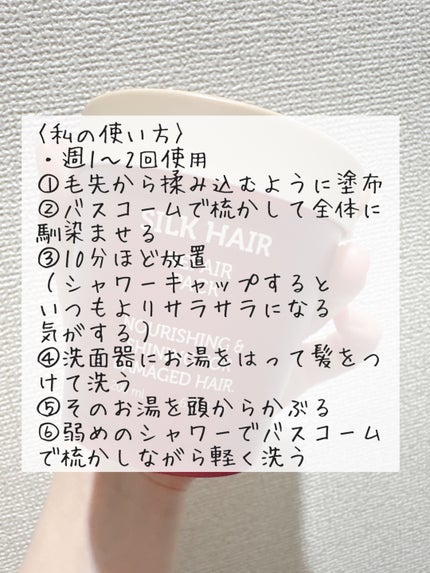 〈私の使い方〉
・週1〜2回使用
①毛先から揉み込むように塗布
②バスコームで梳かして全体に
馴染ませる
③10分ほど放置
(シャワーキャップすると
いつもよりサラサラになる
気がする)
④洗面器にお湯をはって髪をつ
けて洗う
⑤そのお湯を頭からかぶる
⑥弱めのシャワーでバスコーム
で梳かしながら軽く洗う
SILK HAIR
REPAIR
PACK
NOURISHING &
DAMAGED HAIR